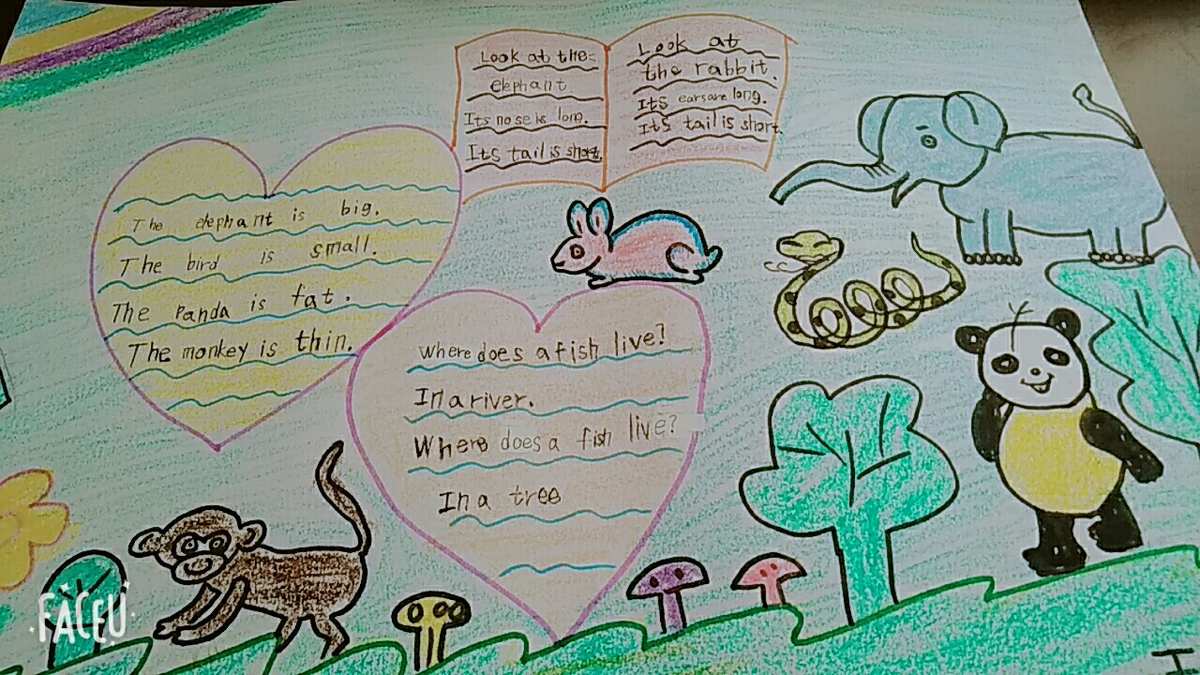 Look at the
elephant
Its nose is long.
Its tail is short.
Look at
the rabbit.
Its ears are long.
Its tail is short.
The elephant is big.
The bird is small.
The Panda is fat.
The monkey is thin.
Where does a fish live?
In a river.
Where does a fish live?
In a tree
FACEU